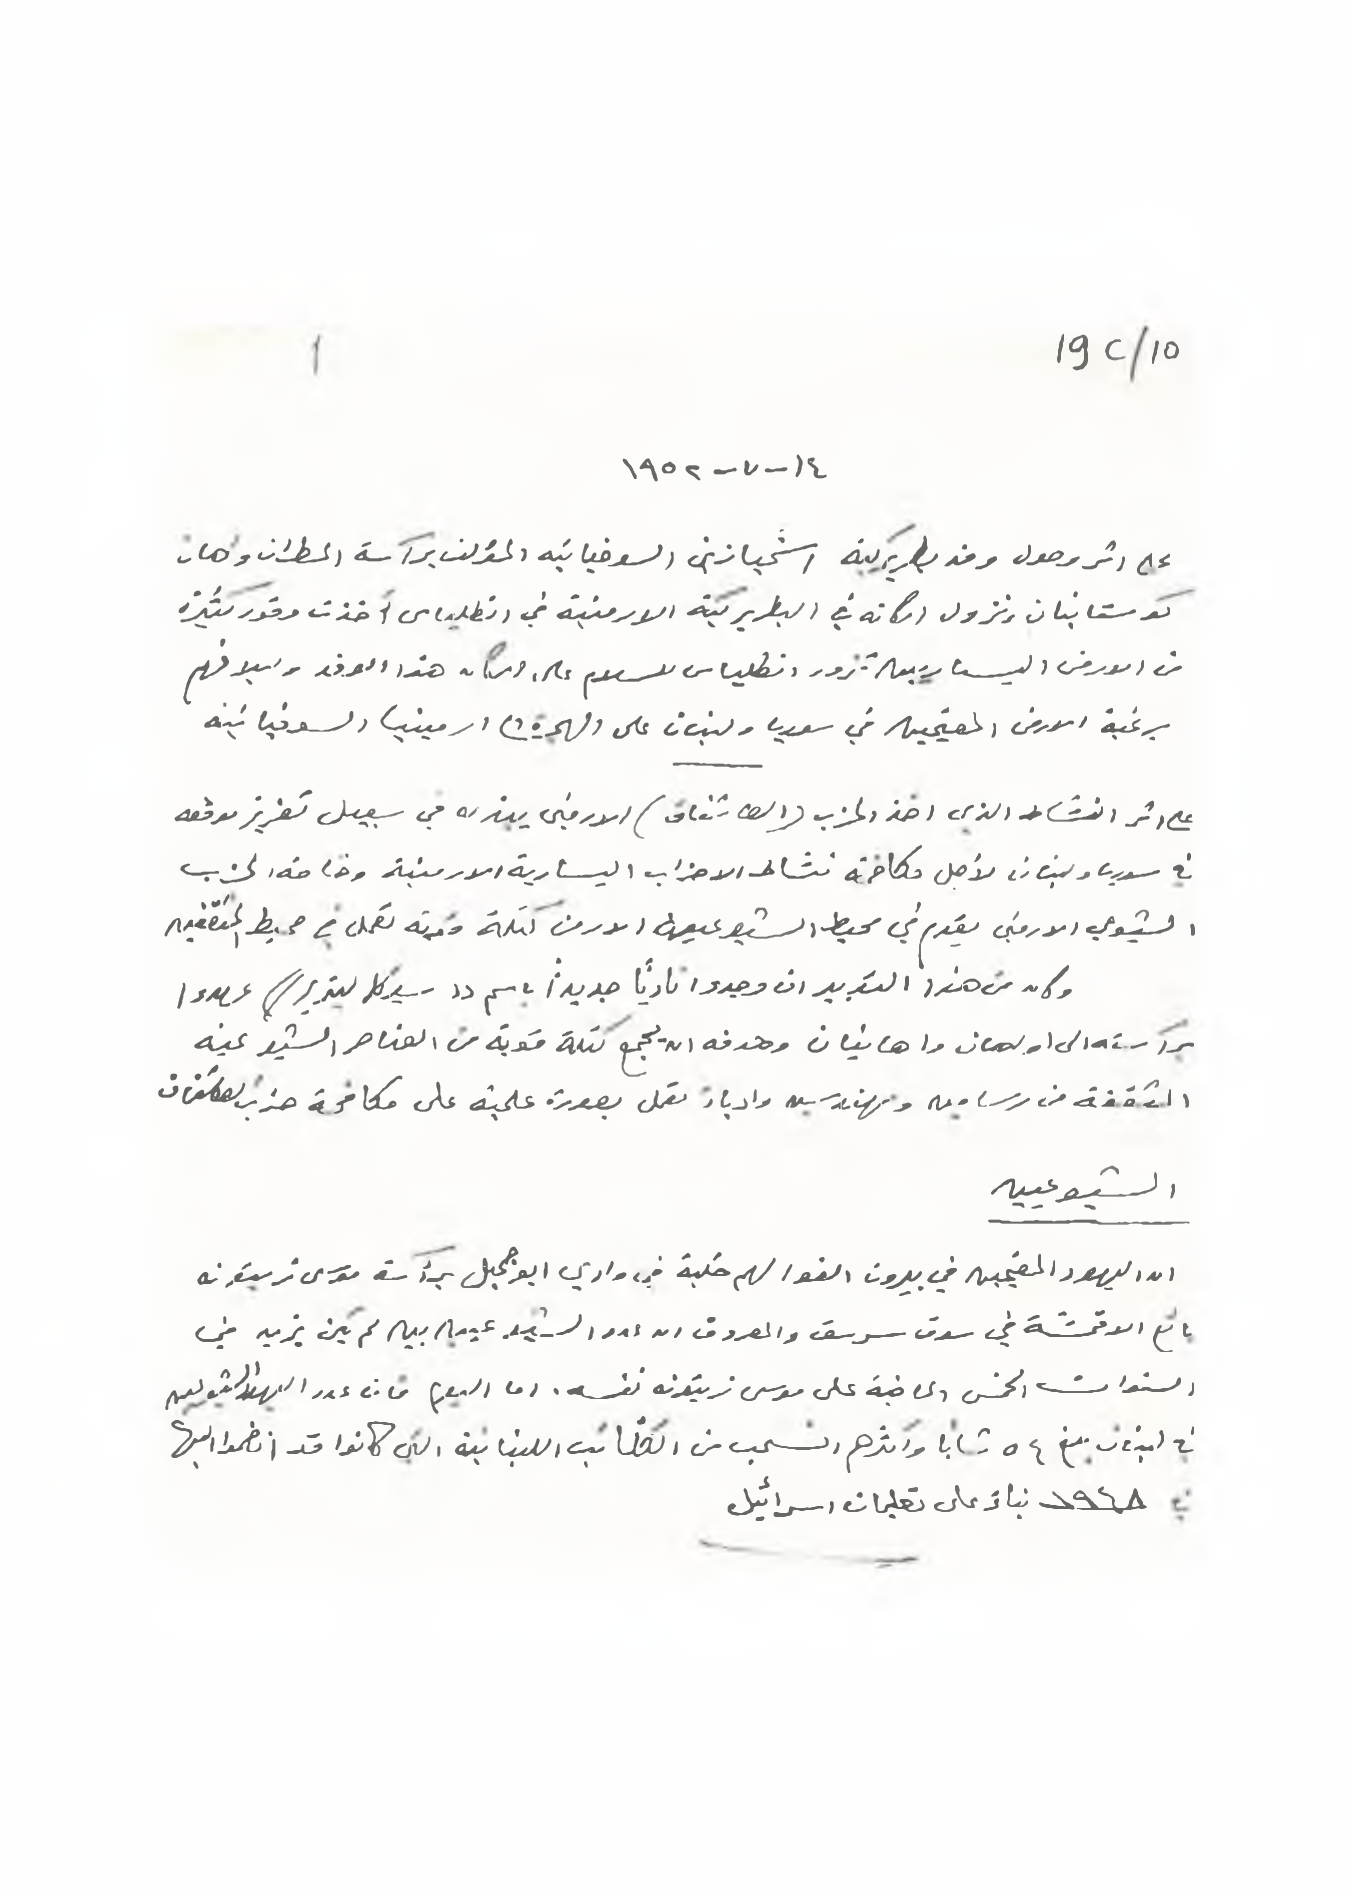 19 C/10
1
١٤-٧-١٩٥٢
على اثر وصول وفد بطريركية اشميازين السوفياتيه المؤلف برآسة المطران واهان
كوستانيان ونزول اركانه في البطريركية الارمنية في انطلياس أخذت وفود كثيرة
من الارمن اليساريين تزور انطلياس للسلام على اركان هذا الوفد وابلاغهم
برغبة الارمن المقيمين في سوريا ولبنان على الهجرة الى ارمينيا السوفياتية
على اثر النشاط الذي اخذ الحزب (الطاشناق) الارمني يبذله في سبيل تعزيز موقفه
في سوريا ولبنان لأجل مكافحة نشاط الاحزاب اليسارية الارمنية وخاصة الحزب
الشيوعي الارمني يقدم في محيط الشيوعيين الارمن كتلة قوية تعمل في محيط المثقفين
وكان من هذا التدبير ان وجدوا ناديًا جديداً باسم (( سيركل ليتيرير )) عهدوا
برآسته الى اوهان واهانيان وهدفه ان يجمع كتلة قوية من العناصر الشيوعية
المثقفة من رسامين ومهندسين وادباء تعمل بصورة علمية على مكافحة حزب الطاشناق
الشيوعيين
ان اليهود المقيمين في بيروت الفوا لهم خلية في وادي ابو جميل برآسة موسى زيتونه
بائع الاقمشة في سوق سرسق والمعروف ان عدد الشيوعيين بينهم لم يكن يزيد في
السنوات الخمس الماضية على موسى زيتونه نفسه. اما اليوم فان عدد اليهود الشيوعيين
في لبنان بلغ ٥٤ شابا وأكثرهم انسحب من الكتائب اللبنانية التي كانوا قد انضموا اليها
في ١٩٤٨ بناء على تعليمات اسرائيل